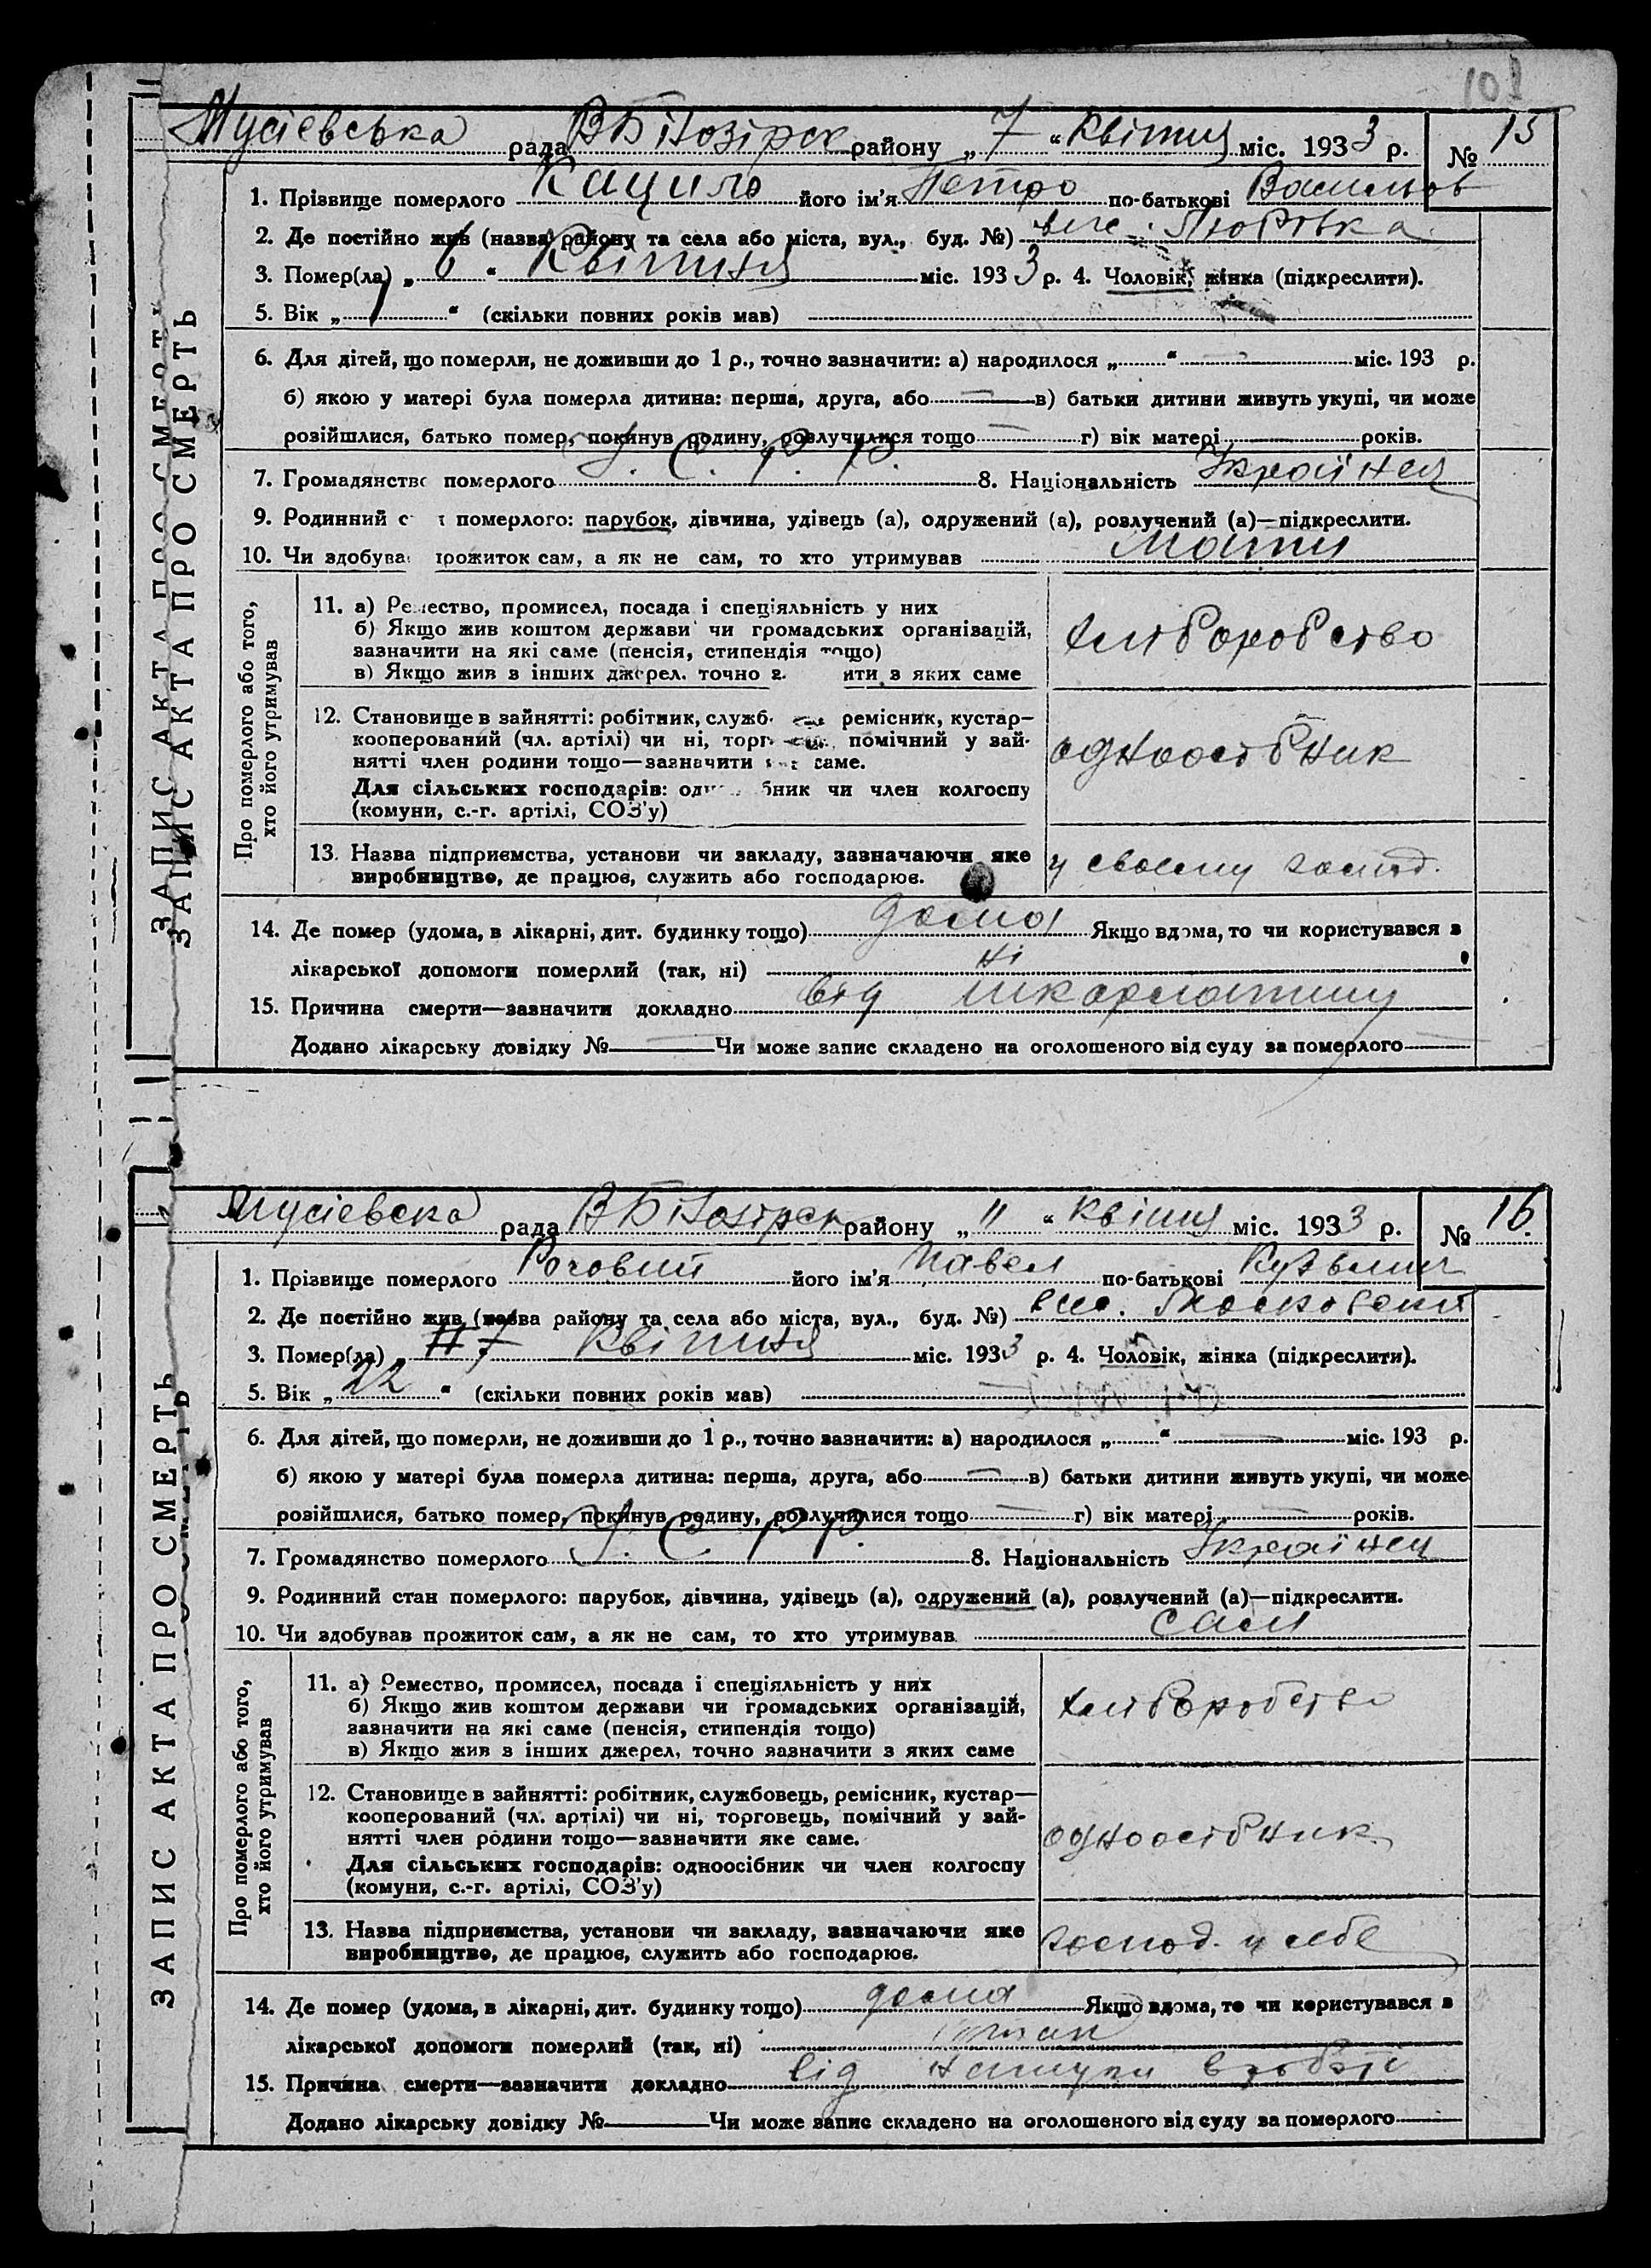 101
Мусієвська рада В Білозірск району „ 7 “ Квітня міс. 1933 р. № 15
1. Прізвище померлого Кацило його ім'я Петро по-батькові Васильов
2. Де постійно жив (назва району та села або міста, вул., буд. №) висе. Любівка
3. Помер(ла) „ 6 “ Квітня міс. 1933 р. 4. Чоловік, жінка (підкреслити).
5. Вік „ 1 “ (скільки повних років мав)
6. Для дітей, що померли, не доживши до 1 р., точно зазначити: а) народилося „ “ — міс. 193 р.
б) якою у матері була померла дитина: перша, друга, або — в) батьки дитини живуть укупі, чи може
розійшлися, батько помер, покинув родину, розлучилися тощо — г) вік матері — років.
7. Громадянство померлого У. С. Р. Р. 8. Національність Українец
9. Родинний с т померлого: парубок, дівчина, удівець (а), одружений (а), розлучений (а)—підкреслити.
10. Чи здобува прожиток сам, а як не сам, то хто утримував Мати
Про померлого або того,
хто його утримував
11. а) Ремество, промисел, посада і спеціяльність у них
б) Якщо жив коштом держави чи громадських організацій,
зазначити на які саме (пенсія, стипендія тощо)
в) Якщо жив з інших джерел, точно з ити з яких саме
хліборобство
12. Становище в зайнятті: робітник, служб ремісник, кустар—
кооперований (чл. артілі) чи ні, торг помічний у зай-
нятті член родини тощо—зазначити саме.
Для сільських господарів: од бник чи член колгоспу
(комуни, с.-г. артілі, СОЗ'у)
одноосібник
13. Назва підприємства, установи чи закладу, зазначаючи яке
виробництво, де працює, служить або господарює.
у своєму госпд.
14. Де помер (удома, в лікарні, дит. будинку тощо) дома Якщо вдома, то чи користувався з
лікарської допомоги померлий (так, ні) ні
15. Причина смерти—зазначити докладно від шкарлатини
Додано лікарську довідку № — Чи може запис складено на оголошеного від суду за померлого —
ЗАПИС АКТА ПРО СМЕРТЬ
ЗАПИС АКТА ПРО СМЕРТЬ
Мусієвска рада В Білозірск району „ 11 “ Квітня міс. 1933 р. № 16
1. Прізвище померлого Роговий його ім'я Павел по-батькові Кузьмич
2. Де постійно жив (назва району та села або міста, вул., буд. №) висе. Московский
3. Помер(ла) 7 Квітня міс. 1933 р. 4. Чоловік, жінка (підкреслити).
5. Вік „ 22 “ (скільки повних років мав)
6. Для дітей, що померли, не доживши до 1 р., точно зазначити: а) народилося „ “ — міс. 193 р.
б) якою у матері була померла дитина: перша, друга, або — в) батьки дитини живуть укупі, чи може
розійшлися, батько помер, покинув родину, розлучилися тощо — г) вік матері — років.
7. Громадянство померлого У. С. Р. Р. 8. Національність Українец
9. Родинний стан померлого: парубок, дівчина, удівець (а), одружений (а), розлучений (а)—підкреслити.
10. Чи здобував прожиток сам, а як не сам, то хто утримував сам
Про померлого або того,
хто його утримував
11. а) Ремество, промисел, посада і спеціяльність у них
б) Якщо жив коштом держави чи громадських організацій,
зазначити на які саме (пенсія, стипендія тощо)
в) Якщо жив з інших джерел, точно зазначити з яких саме
хліборобство
12. Становище в зайнятті: робітник, службовець, ремісник, кустар—
кооперований (чл. артілі) чи ні, торговець, помічний у зай-
нятті член родини тощо—зазначити яке саме.
Для сільських господарів: одноосібник чи член колгоспу
(комуни, с.-г. артілі, СОЗ'у)
одноосібник
13. Назва підприємства, установи чи закладу, зазначаючи яке
виробництво, де працює, служить або господарює.
господ. у себе
14. Де помер (удома, в лікарні, дит. будинку тощо) дома Якщо вдома, то чи користувався з
лікарської допомоги померлий (так, ні) так
15. Причина смерти—зазначити докладно від
Додано лікарську довідку № — Чи може запис складено на оголошеного від суду за померлого —
ЗАПИС АКТА ПРО СМЕРТЬ